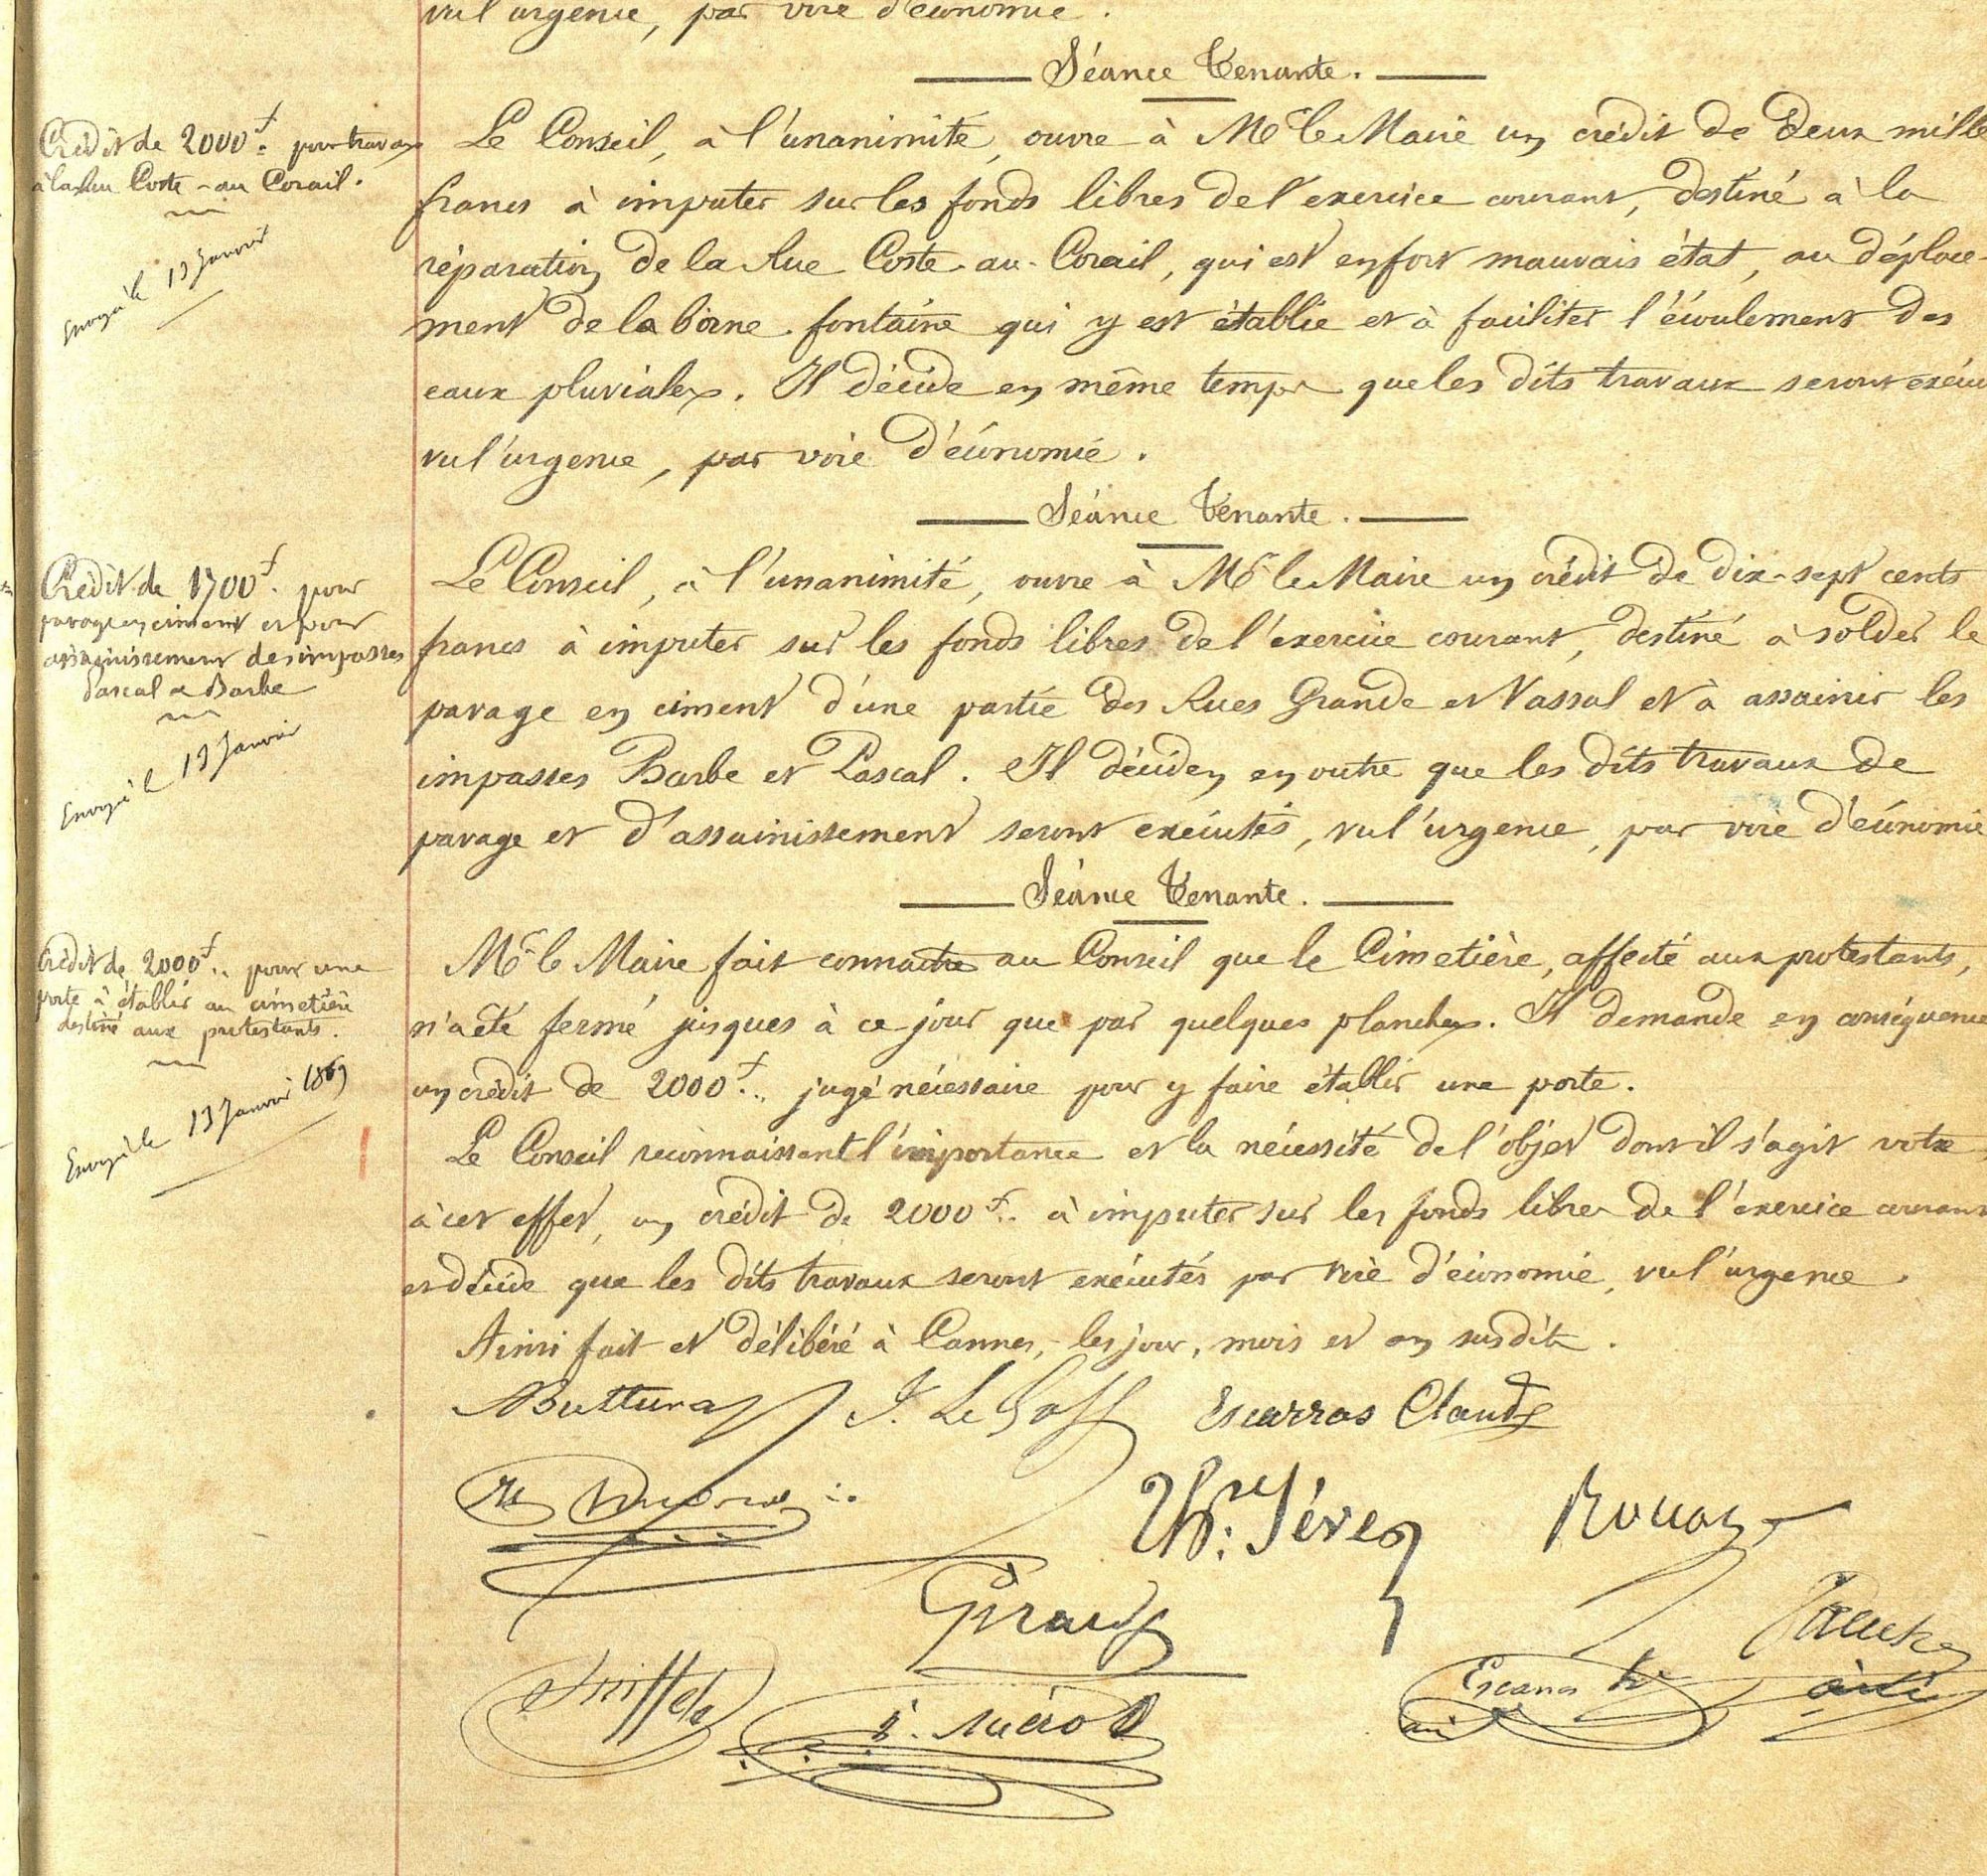 vu l'urgence, par voie d'économie.
Séance Tenante.
Crédit de 2000 f. pour travaux
à la rue Coste-au-Corail.
Envoyé le 13 Janvier
Le Conseil, à l'unanimité, ouvre à Mr. le Maire un crédit de Deux mille
francs à imputer sur les fonds libres de l'exercice courant, destiné à la
réparation de la Rue Coste-au-Corail, qui est en fort mauvais état, au déplace-
ment de la borne-fontaine qui y est établie et à faciliter l'écoulement des
eaux pluviales. Il décide en même temps que les dits travaux seront exécu
vu l'urgence, par voie d'économie.
Séance Tenante.
Crédit de 1700 f. pour
pavage en ciment et pour
assainissement des impasses
Pascal et Barbe
Envoyé le 13 Janvier
Le Conseil, à l'unanimité, ouvre à Mr. le Maire un crédit de dix-sept cents
francs à imputer sur les fonds libres de l'exercice courant, destiné à solder le
pavage en ciment d'une partie des Rues Grande et Vassal et à assainir les
impasses Barbe et Pascal. Il décide, en outre que les dits travaux de
pavage et d'assainissement seront exécutés, vu l'urgence, par voie d'économie
Séance Tenante.
Crédit de 2000 f. pour une
porte à établir au cimetière
destiné aux protestants.
Envoyé le 13 Janvier 1869
Mr. le Maire fait connaître au Conseil que le Cimetière, affecté aux protestants,
n'a été fermé jusques à ce jour que par quelques planches. Il demande en conséquence
un crédit de 2000 f. jugé nécessaire pour y faire établir une porte.
Le Conseil reconnaissant l'importance et la nécessité de l'objet dont il s'agit vote,
à cet effet, un crédit de 2000 f. à imputer sur les fonds libres de l'exercice courant
et décide que les dits travaux seront exécutés par voie d'économie, vu l'urgence.
Ainsi fait et délibéré à Cannes, les jour, mois et an susdits.
Buttura J. Le Goff Escarras Claude
Th. Sève Rouaze
Giraud
Escarras